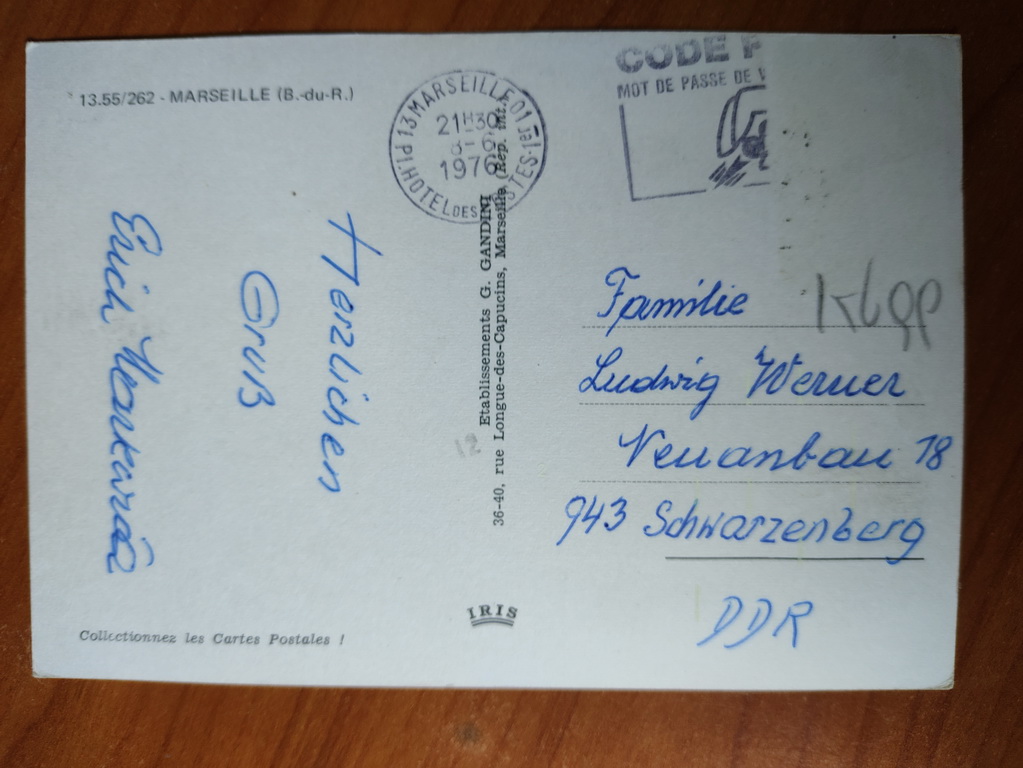 13.55/262 - MARSEILLE (B.-du-R.)
Herzlichen
Gruß
Erich
Collectionnez les Cartes Postales !
13 MARSEILLE 01
21H30
1976
HOTEL DES
Etablissements G. GANDINI
36-40, rue Longue-des-Capucins, Marseille (Rep. int.)
IRIS
CODE
MOT DE PASSE DE
Familie
Klopp
Ludwig Werner
Neuanbau 18
943 Schwarzenberg
DDR